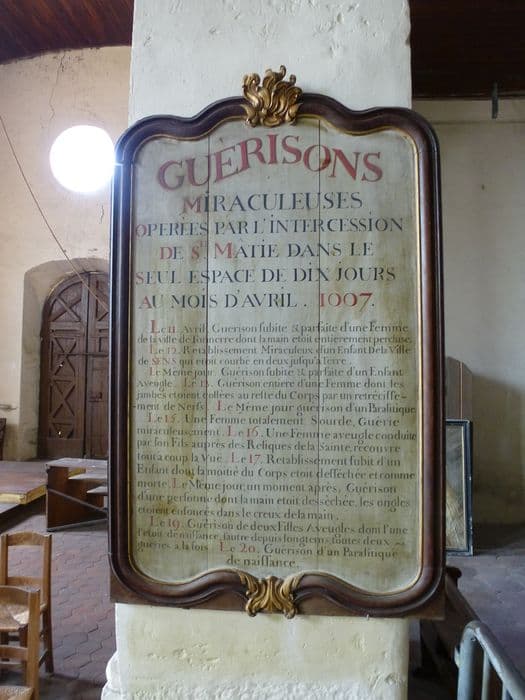 GUÈRISONS
MIRACULEUSES
OPERÉES PAR L'INTERCESSION
DE ST MATIE DANS LE
SEUL ESPACE DE DIX JOURS
AU MOIS D'AVRIL . 1007.
Le 11 Avril, Guerison subite & parfaite d'une Femme
de la ville de Tonnerre dont la main etoit entierement percluse.
Le 12. Retablissement Miraculeux d'un Enfant De la Ville
de SENS qui etoit courbé en deux jusqu'à Terre.
Le Même jour. Guérison subite & parfaite d'un Enfant
Aveugle. Le 13. Guérison entiere d'une Femme dont les
jambes etoient collées au reste du Corps par un retrécisse-
-ment de Nerfs. Le Même jour guerison d'un Paralitique
Le 15. Une Femme totalement Sourde, Guerie
miraculeusement. Le 16. Une Femme aveugle conduite
par son Fils auprès des Reliques de la Sainte, recouvre
tout a coup la Vuë. Le 17. Retablissement subit d'un
Enfant dont la moitié du Corps etoit desséchée et comme
morte. Le Même jour, un moment après, Guérison
d'une personne dont la main etoit desséchée, les ongles
etoient enfoncés dans le creux de la main.
Le 19. Guérison de deux Filles Aveugles dont l'une
l'etoit de naissance, l'autre depuis longtems, toutes deux
guéries a la fois. Le 20. Guérison d'un Paralitique
de naissance.